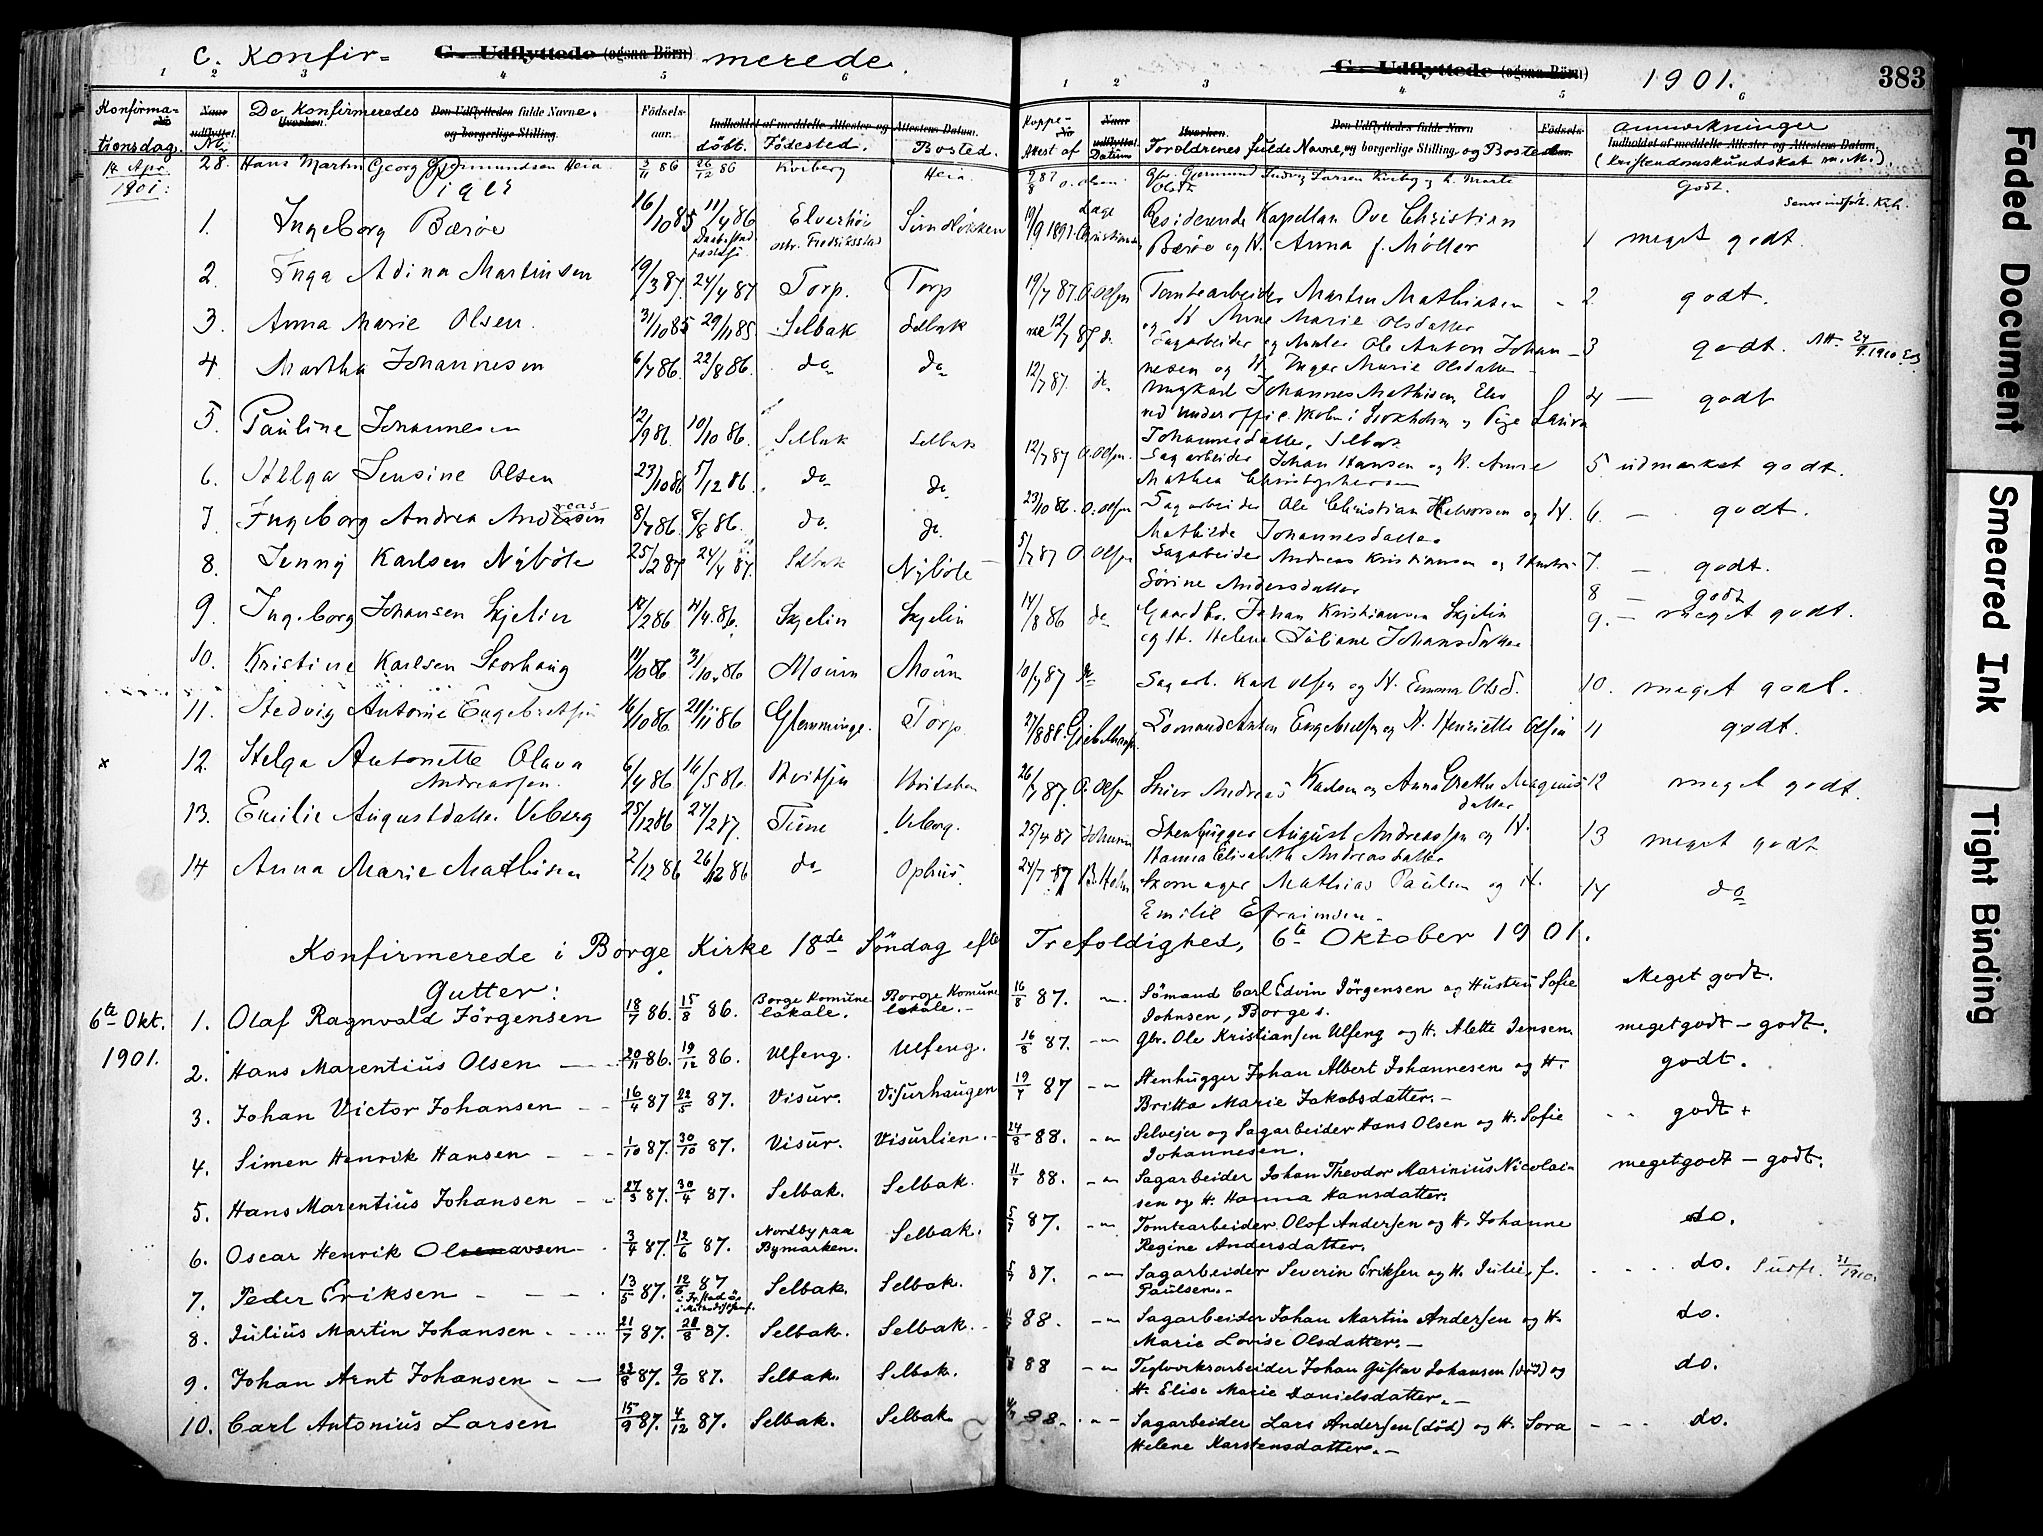 C. Konfir= G. Udflyttede (ogsaa Börn) merede.
G. Udflyttede (ogsaa Börn) 1901. 383
1 2 3 4 5 6 1 2 3 4 5 6
Konfirma- tionsdag. Naar udflyttet. No De Konfirmeredes Hvorhen. Den Udflyttedes fulde Navne. og borgerlige Stilling. Födsels- aar. döbt. Indholdet af meddelte Attester og Attestens Datum. Födested. Bosted.
Koppe- Attest af Naar udflyttet. Datum Hvorhen. Den Udflyttedes fulde Navn Forældrenes fulde Navne, og borgerlige Stilling, og Bosted. Födsels- aar. Anmerkninger Indholdet af meddelte Attester og Attestens Datum. (kristendomskundskab m. M.).
14 Apr. 1901: 28. Hans Martin Georg Gjermundsen Heia 3/11 86 26/12 86 Kiriberg Heia O. Olsen Godt.
Piger
1. Ingeborg Bærøe 16/10 85 11/4 86 Elverhöi ostr. Fredriksstad Sundløkken 19/9 1891. Læge Christian Residerende Kapellan Ove Christian
Bærøe og H. Anna f. Møller 1 meget godt.
2. Inga Adina Martinsen 19/3 87. 24/4 87 Torp. Torp 19/7 87. O. Olsen Tomtearbeider Martin Mathiasen 2. godt.
og H. Anne Marie Olsdatter
3. Anna Marie Olsen. 31/10 85 29/11 85 Selbak Selbak 12/7 87 d. Sagarbeider og Ole Anton Johan- 3 godt. Att. 24/9.1910
nesen og H. Inger Marie Olsdatter
4 Martha Johannesen 6/7 86. 22/8 86. do do 12/7 87. do Ungkarl Johannes Mathisen 4 — godt
ved underoffic. skolen i Stockholm og Pige Laura
Johannesdatter, Selbak
5. Pauline Johannesen 12/9 86. 10/10 86. Selbak Selbak 12/7 87 O. Olsen. Sagarbeider Johan Hansen og H. Anne 5 udmærket godt.
Mathea Christophersen
6. Helga Jensine Olsen 23/10 86 5/12 86. do do 23/10 86. O. Olsen Sagarbeider Ole Christian Halvorsen og H. 6. — godt.
Mathilde Johannesdatter
7. Ingeborg Andrea Andreasen 8/7 86. 8/8 86. do. do. 5/7 87 O. Olsen Sagarbeider Andreas Kristiansen og Hustru 7. — godt.
Sörine Andersdatter
8. Jenny Karlsen Nÿböle 25/2 87 24/4 87. Selbak Nÿböle 8 — godt
9. Ingeborg Johansen Skjelin 18/2 86 4/4 86. Skjelin Skjelin 14/8 86 do Gaardbr. Johan Kristiansen Skjelin 9. — meget godt.
og H. Helene Juliane Johansdatter
10. Kristine Karlsen Storhaug 11/10 86 31/10 86 Moüm Moüm 10/7 87 do Sagarb. Karl Olsen og H. Emma Olsd. 10. meget godt.
11. Hedvig Antonie Engebretsen 16/10 86. 21/11 86 Glemminge. Torp 27/8 88. Sömand Anton Engebretsen og H. Henriette Olsen 11 godt.
x 12. Helga Antonette Olava
Andreassen. 6/4 86 16/5 86. Hvitsten 26/7 87. O. Olsen Skier Andreas Karlsen og Anna Grethe Magnus- 12 meget godt.
datter
13. Emilie Augustdatter Veberg 25/12 86 27/2 87. Tune Veberg. 25/4 87 Johannes Stenhugger August Andreassen og H. 13 meget godt
Hanna Elisabeth Andreasdatter
14 Anna Marie Mathisen 2/12 86 26/12 86 do Ophus. 24/7 87 B. Holm Skomager Mathias Paulsen og H. 14 do
Emilie Efraimsen.
Konfirmerede i Borge Kirke 18de Söndag efter Trefoldighed, 6te Oktober 1901.
Gutter:
6te Okt. 1901. 1. Olaf Ragnvald Jörgensen 18/7 86. 15/8 86. Borge Komune lokale. Borge Komune lokale. 16/8 87. — Sömand Carl Edvin Jörgensen og Hustru Sofie Meget godt.
Johnsen, Borge s.
2. Hans Marentius Olsen 20/11 86. 19/12 86. Ulfeng. Ulfeng. 16/8 87. — Gbr. Ole Kristiansen Ulfeng og H. Alette Jensen. meget godt - godt.
3. Johan Victor Johansen 16/4 87 22/5 87. Visur. Visurhaugen 19/7 87 — Stenhugger Johan Albert Johannesen og H. godt.
Britta Marie Jakobsdatter.
4. Simen Henrik Hansen 1/10 87. 30/10 87. Visur. Visurlien. 24/8 88. — Selveier og Sagarbeider Hans Olsen og H. Sofie godt +
Johannesen.
5. Hans Marentius Johansen 27/3 87. 30/4 87. Selbak. Selbak. 11/7 88. — Sagarbeider Johan Theodor Marinius Nicolai- meget godt - godt.
sen og H. Hanna Hansdatter.
6. Oscar Henrik Olsen 3/4 87. 12/6 87. Nordby paa Bymarken. Selbak. 5/7 87. — Tomtearbeider Olof Andersen og H. Johanne do.
Regine Andersdatter.
7. Peder Eriksen 13/5 87. 12/6 87 i Fr.stad i Selbak. Selbak. 5/7 87. — Sagarbeider Severin Eriksen og H. Julie f. do.
Paulsen.
8. Julius Martin Johansen 21/7 87. 28/8 87. Selbak. Selbak. 88. — Sagarbeider Johan Martin Andersen og H. do.
Marie Lovise Olsdatter.
9. Johan Arnt Johansen 23/8 87. 9/10 87. Selbak. Selbak. 88 — Teglverksarbeider Johan Gustav Johansen (död) og do.
H. Elise Marie Danielsdatter.
10. Carl Antonius Larsen 15/9 87. 4/12 87. Selbak. Selbak. 88. — Sagarbeider Lars Andersen (död) og H. Sora do.
Helene Karstensdatter.
Faded Document
Smeared Ink
Tight Binding